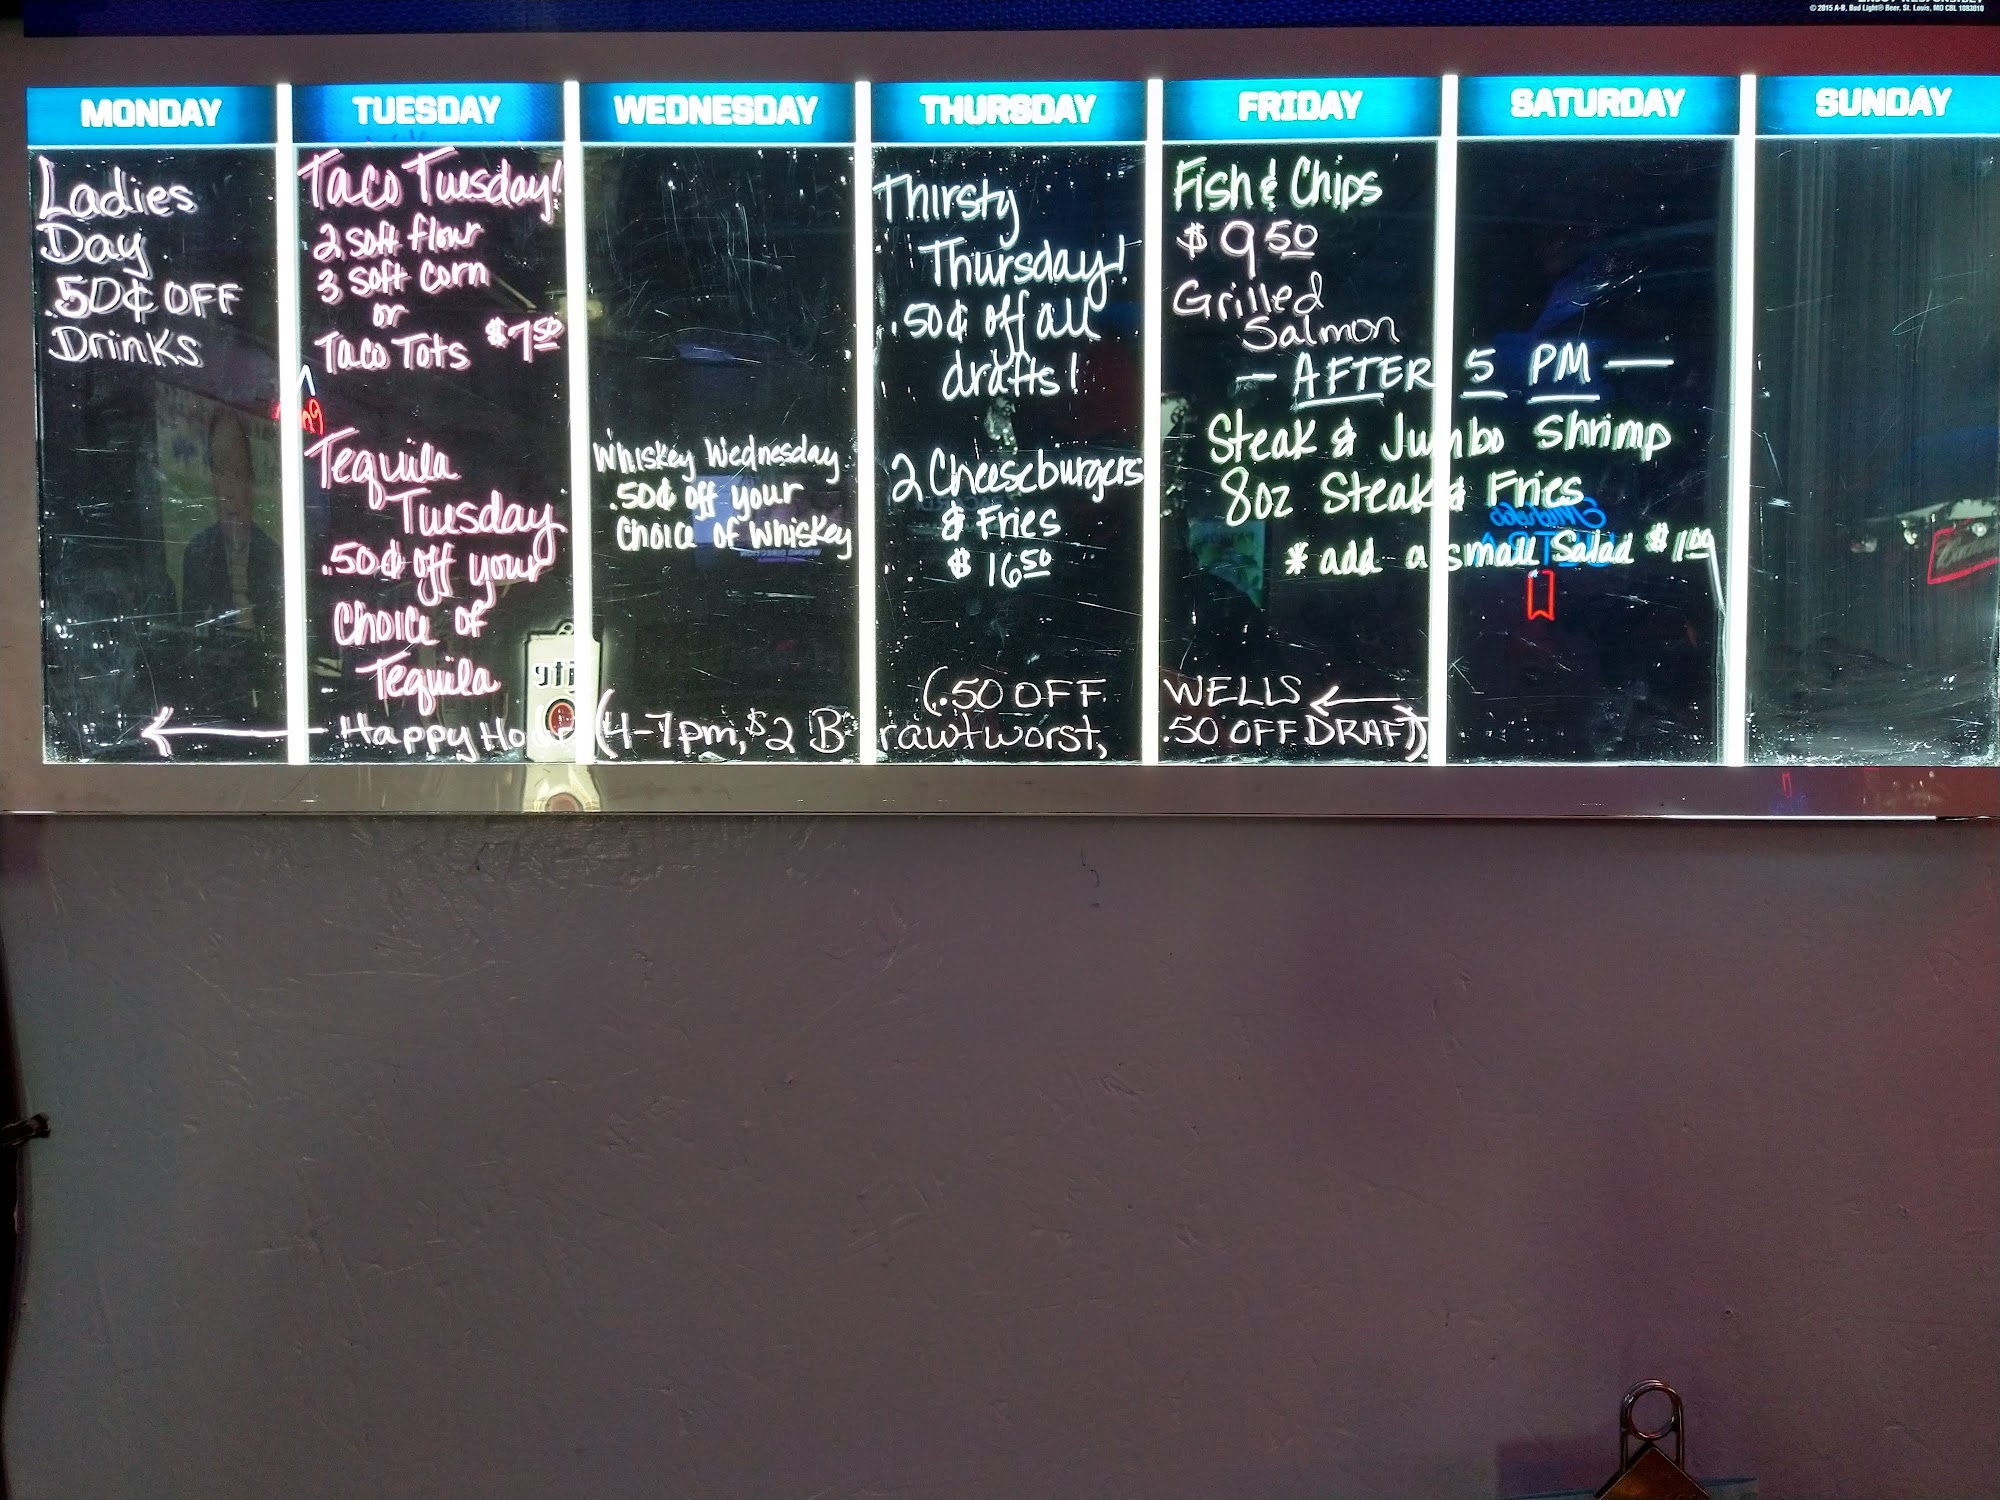 © 2015 A-B, Bud Light® Beer, St. Louis, MO
MONDAY
Ladies
Day
.50¢ OFF
Drinks
TUESDAY
Taco Tuesday!
2 soft flour
3 soft corn
or
Taco Tots $7.50
Tequila
Tuesday
.50¢ off your
Choice of
Tequila
WEDNESDAY
Whiskey Wednesday
.50¢ off your
Choice of Whiskey
THURSDAY
Thirsty
Thursday!
.50¢ off all
drafts!
2 Cheeseburgers
& Fries
$16.50
FRIDAY
SATURDAY
SUNDAY
Fish & Chips
$9.50
Grilled
Salmon
— AFTER 5 PM —
Steak & Jumbo Shrimp
8oz Steak & Fries
* add a small Salad $1.00
(.50 OFF WELLS
Happy Hour (4-7pm, $2 Brawtworst, .50 OFF DRAFT)